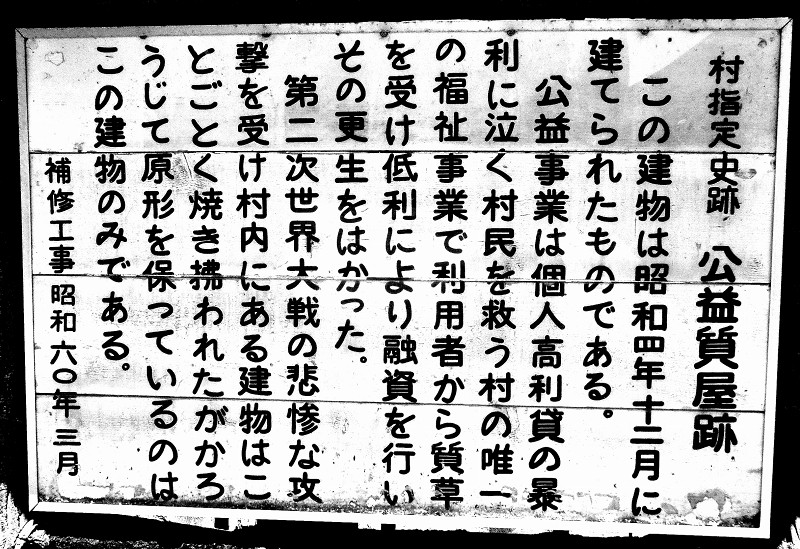 村指定史跡　公益質屋跡
この建物は昭和四年十二月に
建てられたものである。
公益事業は個人高利貸の暴
利に泣く村民を救う村の唯一
の福祉事業で利用者から質草
を受け低利により融資を行い
その更生をはかった。
第二次世界大戦の悲惨な攻
撃を受け村内にある建物はこ
とごとく焼き拂われたがかろ
うじて原形を保っているのは
この建物のみである。
補修工事 昭和六〇年三月